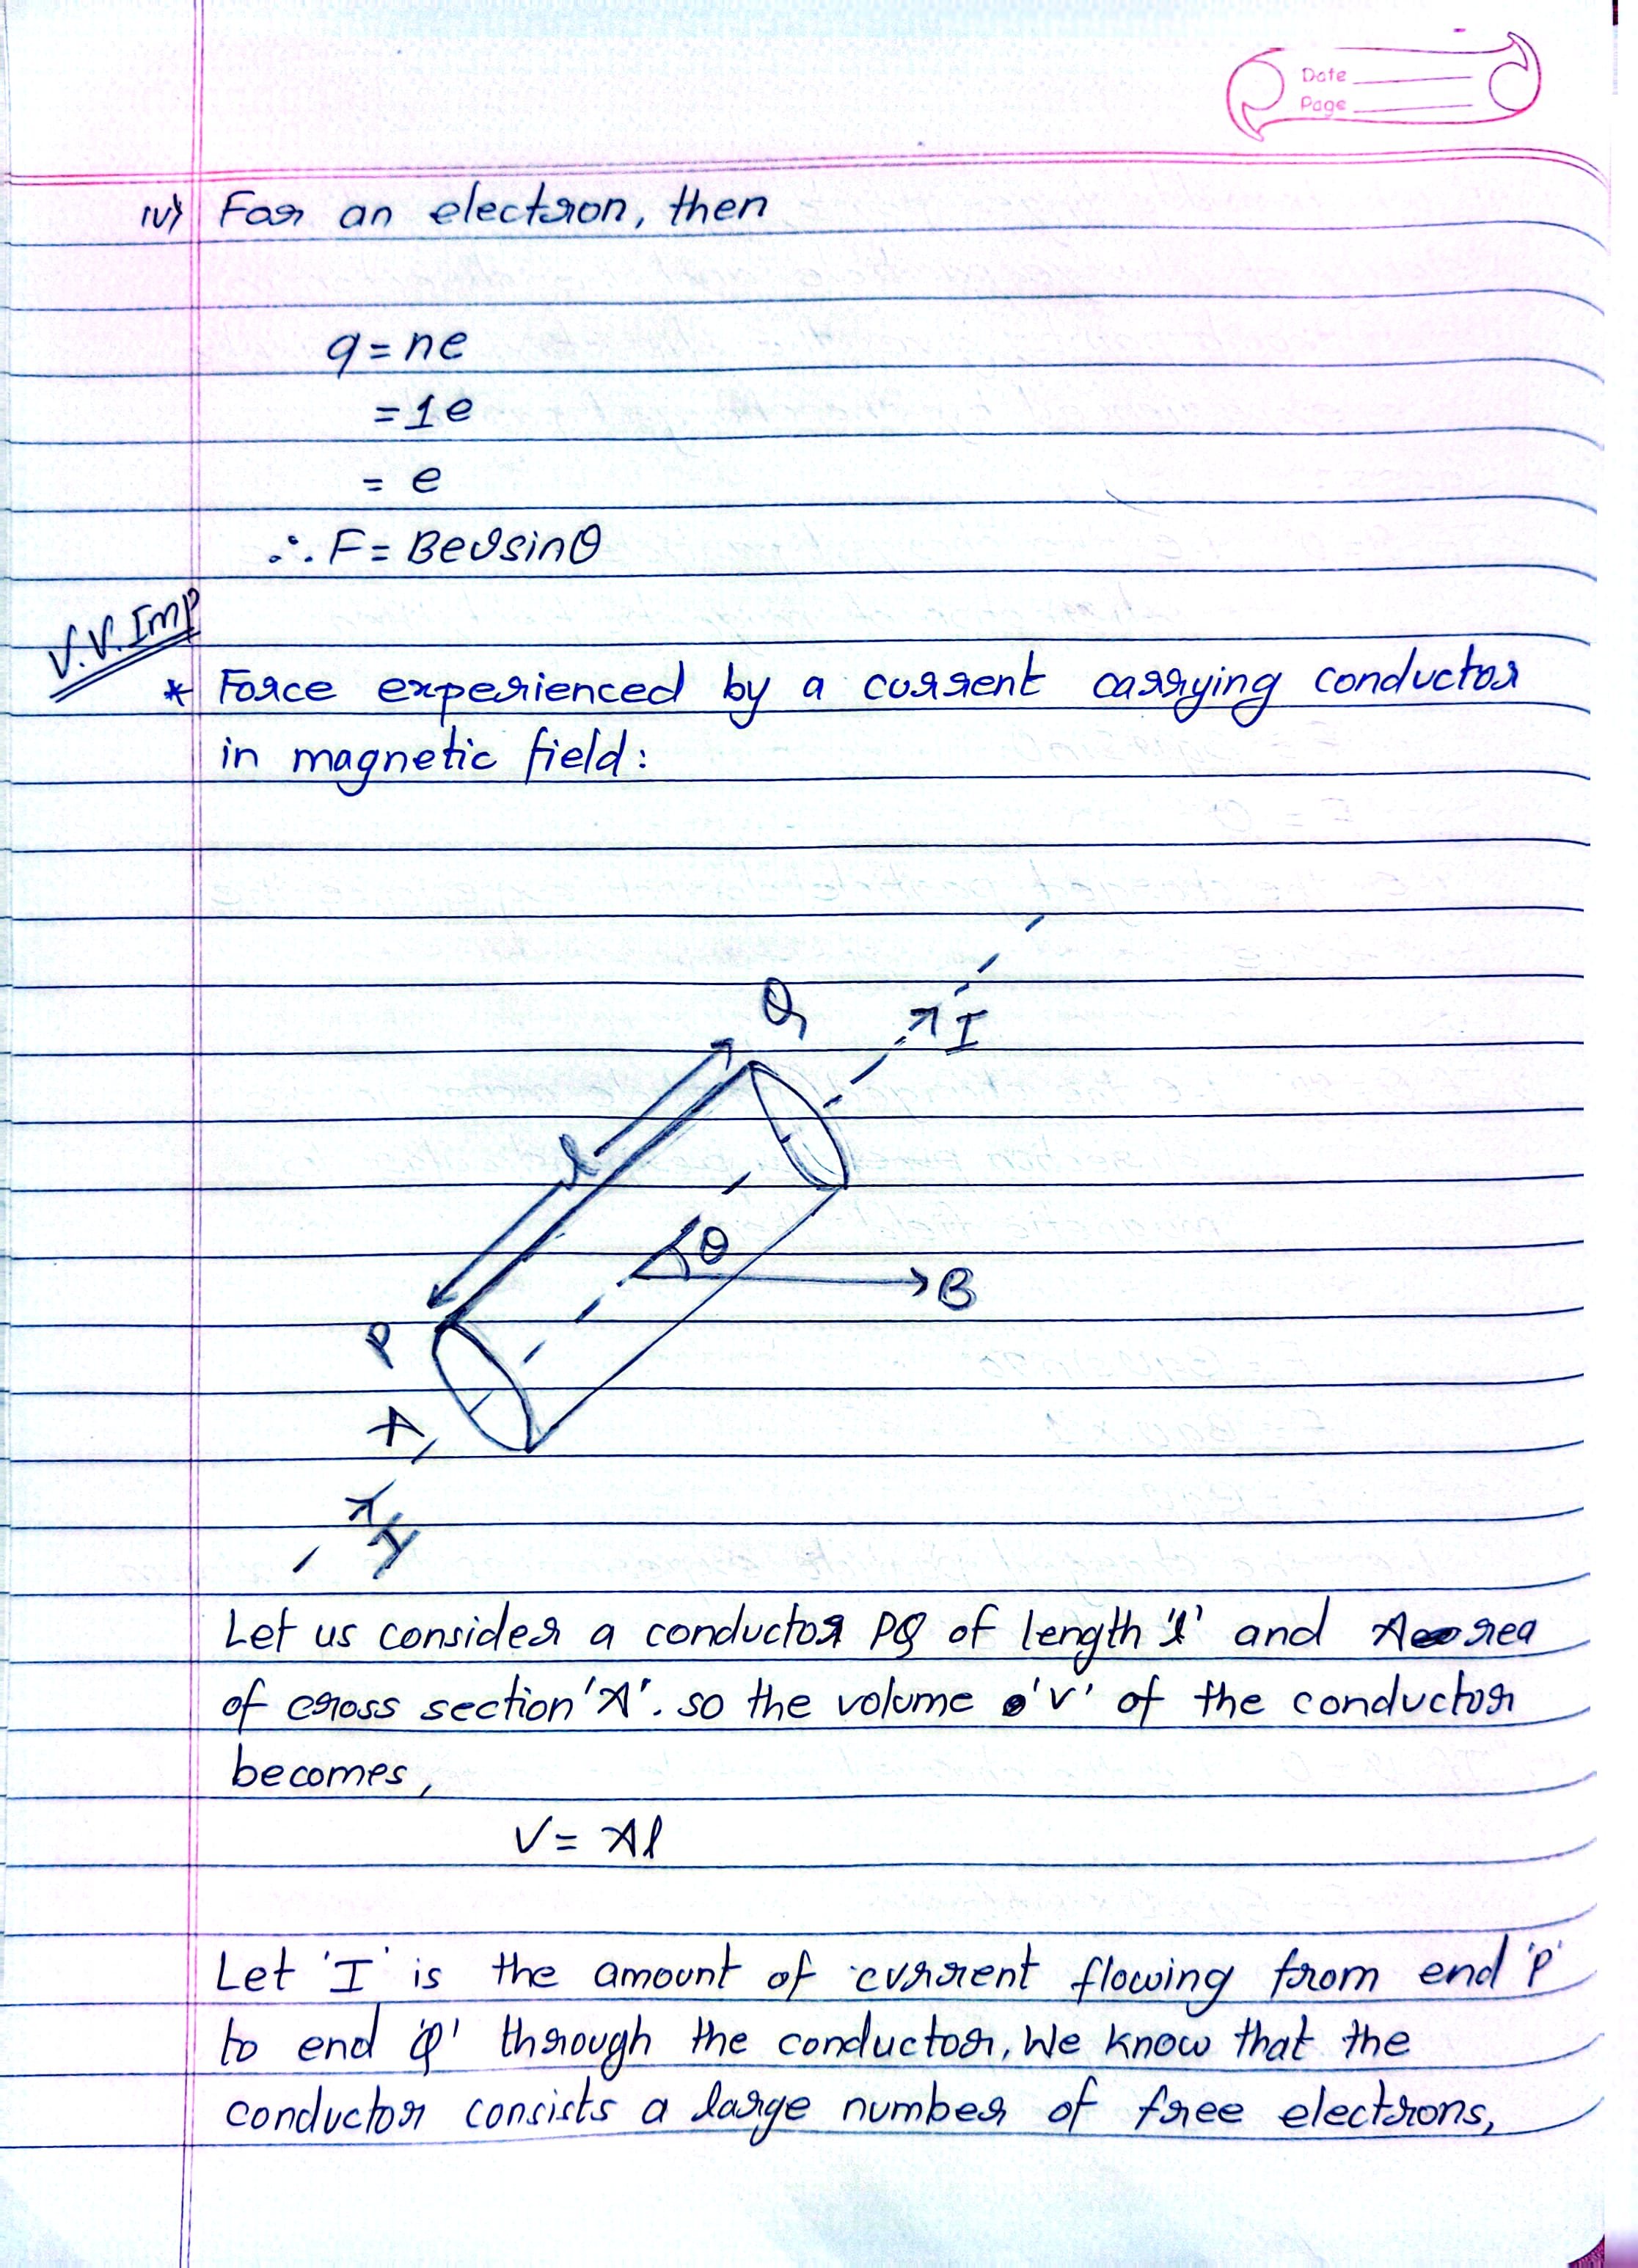 Date
Page
iv) For an electron, then
q = ne
= 1e
= e
∴ F = Bevsinθ
V.V.Imp
* Force experienced by a current carrying conductor
in magnetic field:
Q
I
l
θ
B
P
A
I
Let us consider a conductor PQ of length 'l' and Area
of cross section 'A'. so the volume 'V' of the conductor
becomes,
V = Al
Let 'I' is the amount of current flowing from end 'P'
to end 'Q' through the conductor. We know that the
conductor consists a large number of free electrons,